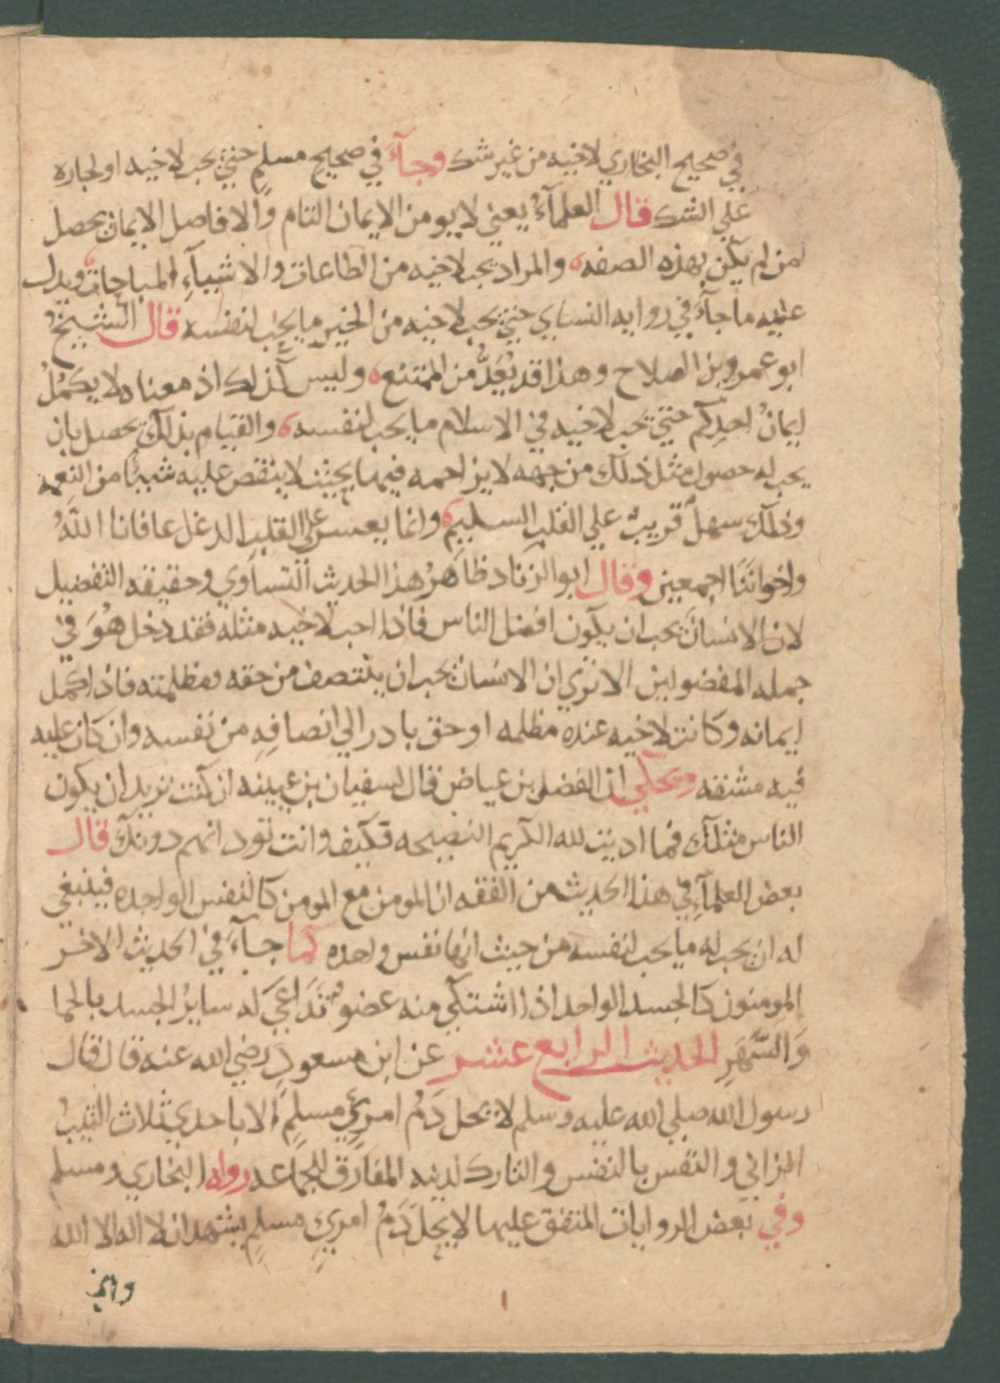 في صحيح البخاري لاخيه من غير شك وجآء في صحيح مسلم حتي يحب لاخيه او لجاره
علي الشك قال العلمآء يعني لا يومن الايمان التام والا فاصل الايمان يحصل
لمن لم يكن بهذه الصفه والمراد يحب لاخيه من الطاعات والاشيآء المباحات ويدل
عليه ما جآء في روايه النساي حتي يحب لاخيه من الخير ما يحب لنفسه قال الشيخ
ابو عمرو بن الصلاح وهذا قد يُعَدُّ من الممتنع وليس كذلك اذ معناه لا يكملُ
ايمانُ احدكم حتي يحب لاخيه في الاسلام ما يحب لنفسه والقيام بذلك يحصل بان
يحب له حصول مثل ذلك من جهه لا يزاحمه فيها بحيث لا ينقص عليه شيئًا من النعمه
وذلك سهلٌ قريبٌ علي القلب السليم وانما يعسر علي القلب الدغل عافانا اللهُ
واخواننا اجمعين وقال ابو الزناد ظاهرُ هذا الحديث التساوي وحقيقه التفضيل
لان الانسان يحب ان يكون افضل الناس فاذا احب لاخيه مثله فقد دخل هُوَ في
جمله المفضولين الا تري ان الانسان يحب ان ينتصف من حقه ومظلمته فاذا كمل
ايمانه وكانت لاخيه عنده مظلمه او حق بادر الي انصافِهِ من نفسه وان كان عليه
فيه مشقه ويحكي ان الفضل بن عياض قال لسفيان بن عيينه ان كنت تريد ان يكون
الناس مثلك فما اديت لله الكريم النصيحه فكيف وانت تود انهم دونك قال
بعض العلمآء في هذا الحديث من الفقه ان المومن مع المومن كالنفس الواحده فينبغي
له ان يحب له ما يحب لنفسه من حيث انها نفس واحده كما جآء في الحديث الاخر
المومنون كالجسد الواحد اذا اشتكي منه عضو تَدَاعَيَ له سايرُ الجسد بالحما
وَالسَّهَرِ الحديث الرابع عشر عن ابن مسعودٍ رضي الله عنه قال قال
رسول الله صلي الله عليه وسلم لا يحل دَمُ امريٍ مسلمٍ الا باحدي ثلاث الثيبُ
الزاني والنفس بالنفس والتارك لدينه المفارق للجماعه رواه البخاري ومسلم
وفي بعض الروايات المتفق عليها لا يحل دَمُ امريٍ مسلمٍ يشهد ان لا اله الا الله